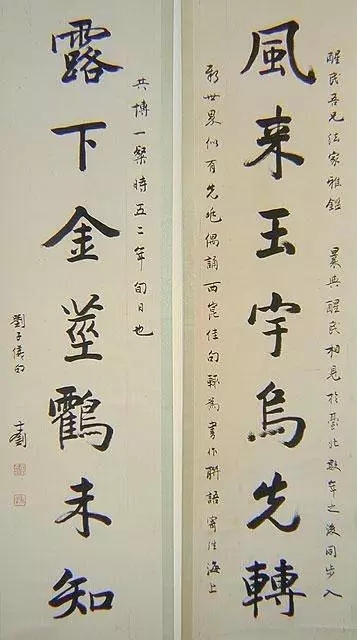 醒民吾兄法家雅鑑 曩與醒民相見於臺北數年之後同步入
風来玉宇烏先轉
新世界似有先兆偶誦西崑佳句輒為書作聯語寄往海上
共博一粲時五二年旬日也
露下金莖鸖未知
劉子儀句